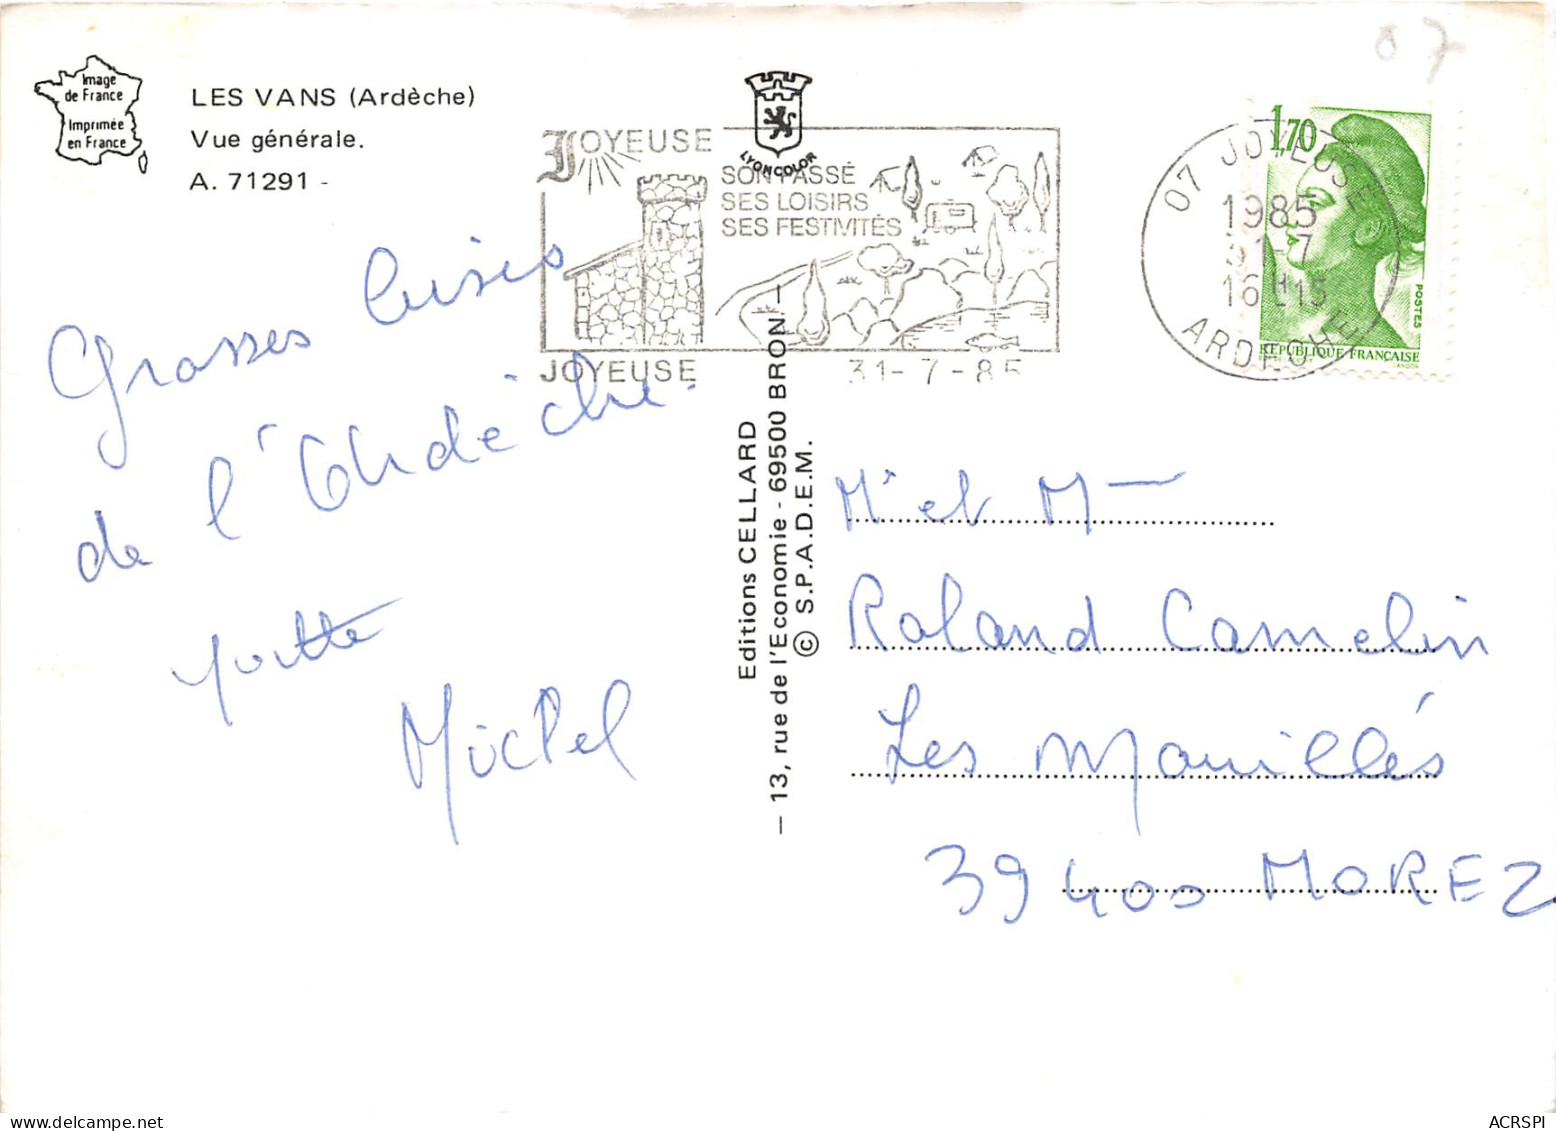 07
Image
de France
Imprimée
en France
LES VANS (Ardèche)
Vue générale.
A. 71291 -
LYONCOLOR
JOYEUSE
SON PASSÉ
SES LOISIRS
SES FESTIVITÉS
JOYEUSE
31-7-85
07 JOYEUSE
1985
31-7
16H15
ARDECHE
1,70
POSTES
RÉPUBLIQUE FRANÇAISE
GANDON
Grosses bises
de l'Ardèche.
Yvette
Michel
Editions CELLARD
— 13, rue de l'Economie - 69500 BRON —
© S.P.A.D.E.M.
Mr et Mme
Roland Camelin
Les Mouillés
39400 MOREZ
ACRSPI